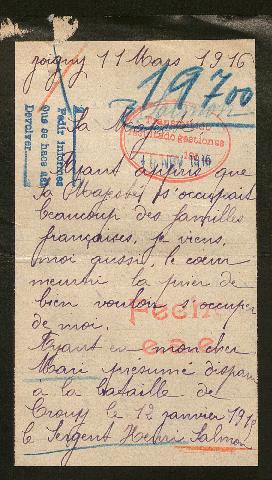 Joigny 11 Mars 1916
19700
Sa Majesté
Transmitido
gestiones
10 NOV 1916
Pedir informes
Que se hace aqui
Devolver
Ayant appris que
Sa Majesté s'occupait
beaucoup des familles
françaises, je viens,
moi aussi, le cœur
meurtri la prier de
bien vouloir s'occuper
de moi.
Ayant eu mon cher
Mari présumé disparu
à la bataille de
Crouy le 12 janvier 1915
le Sergent Henri Salmon